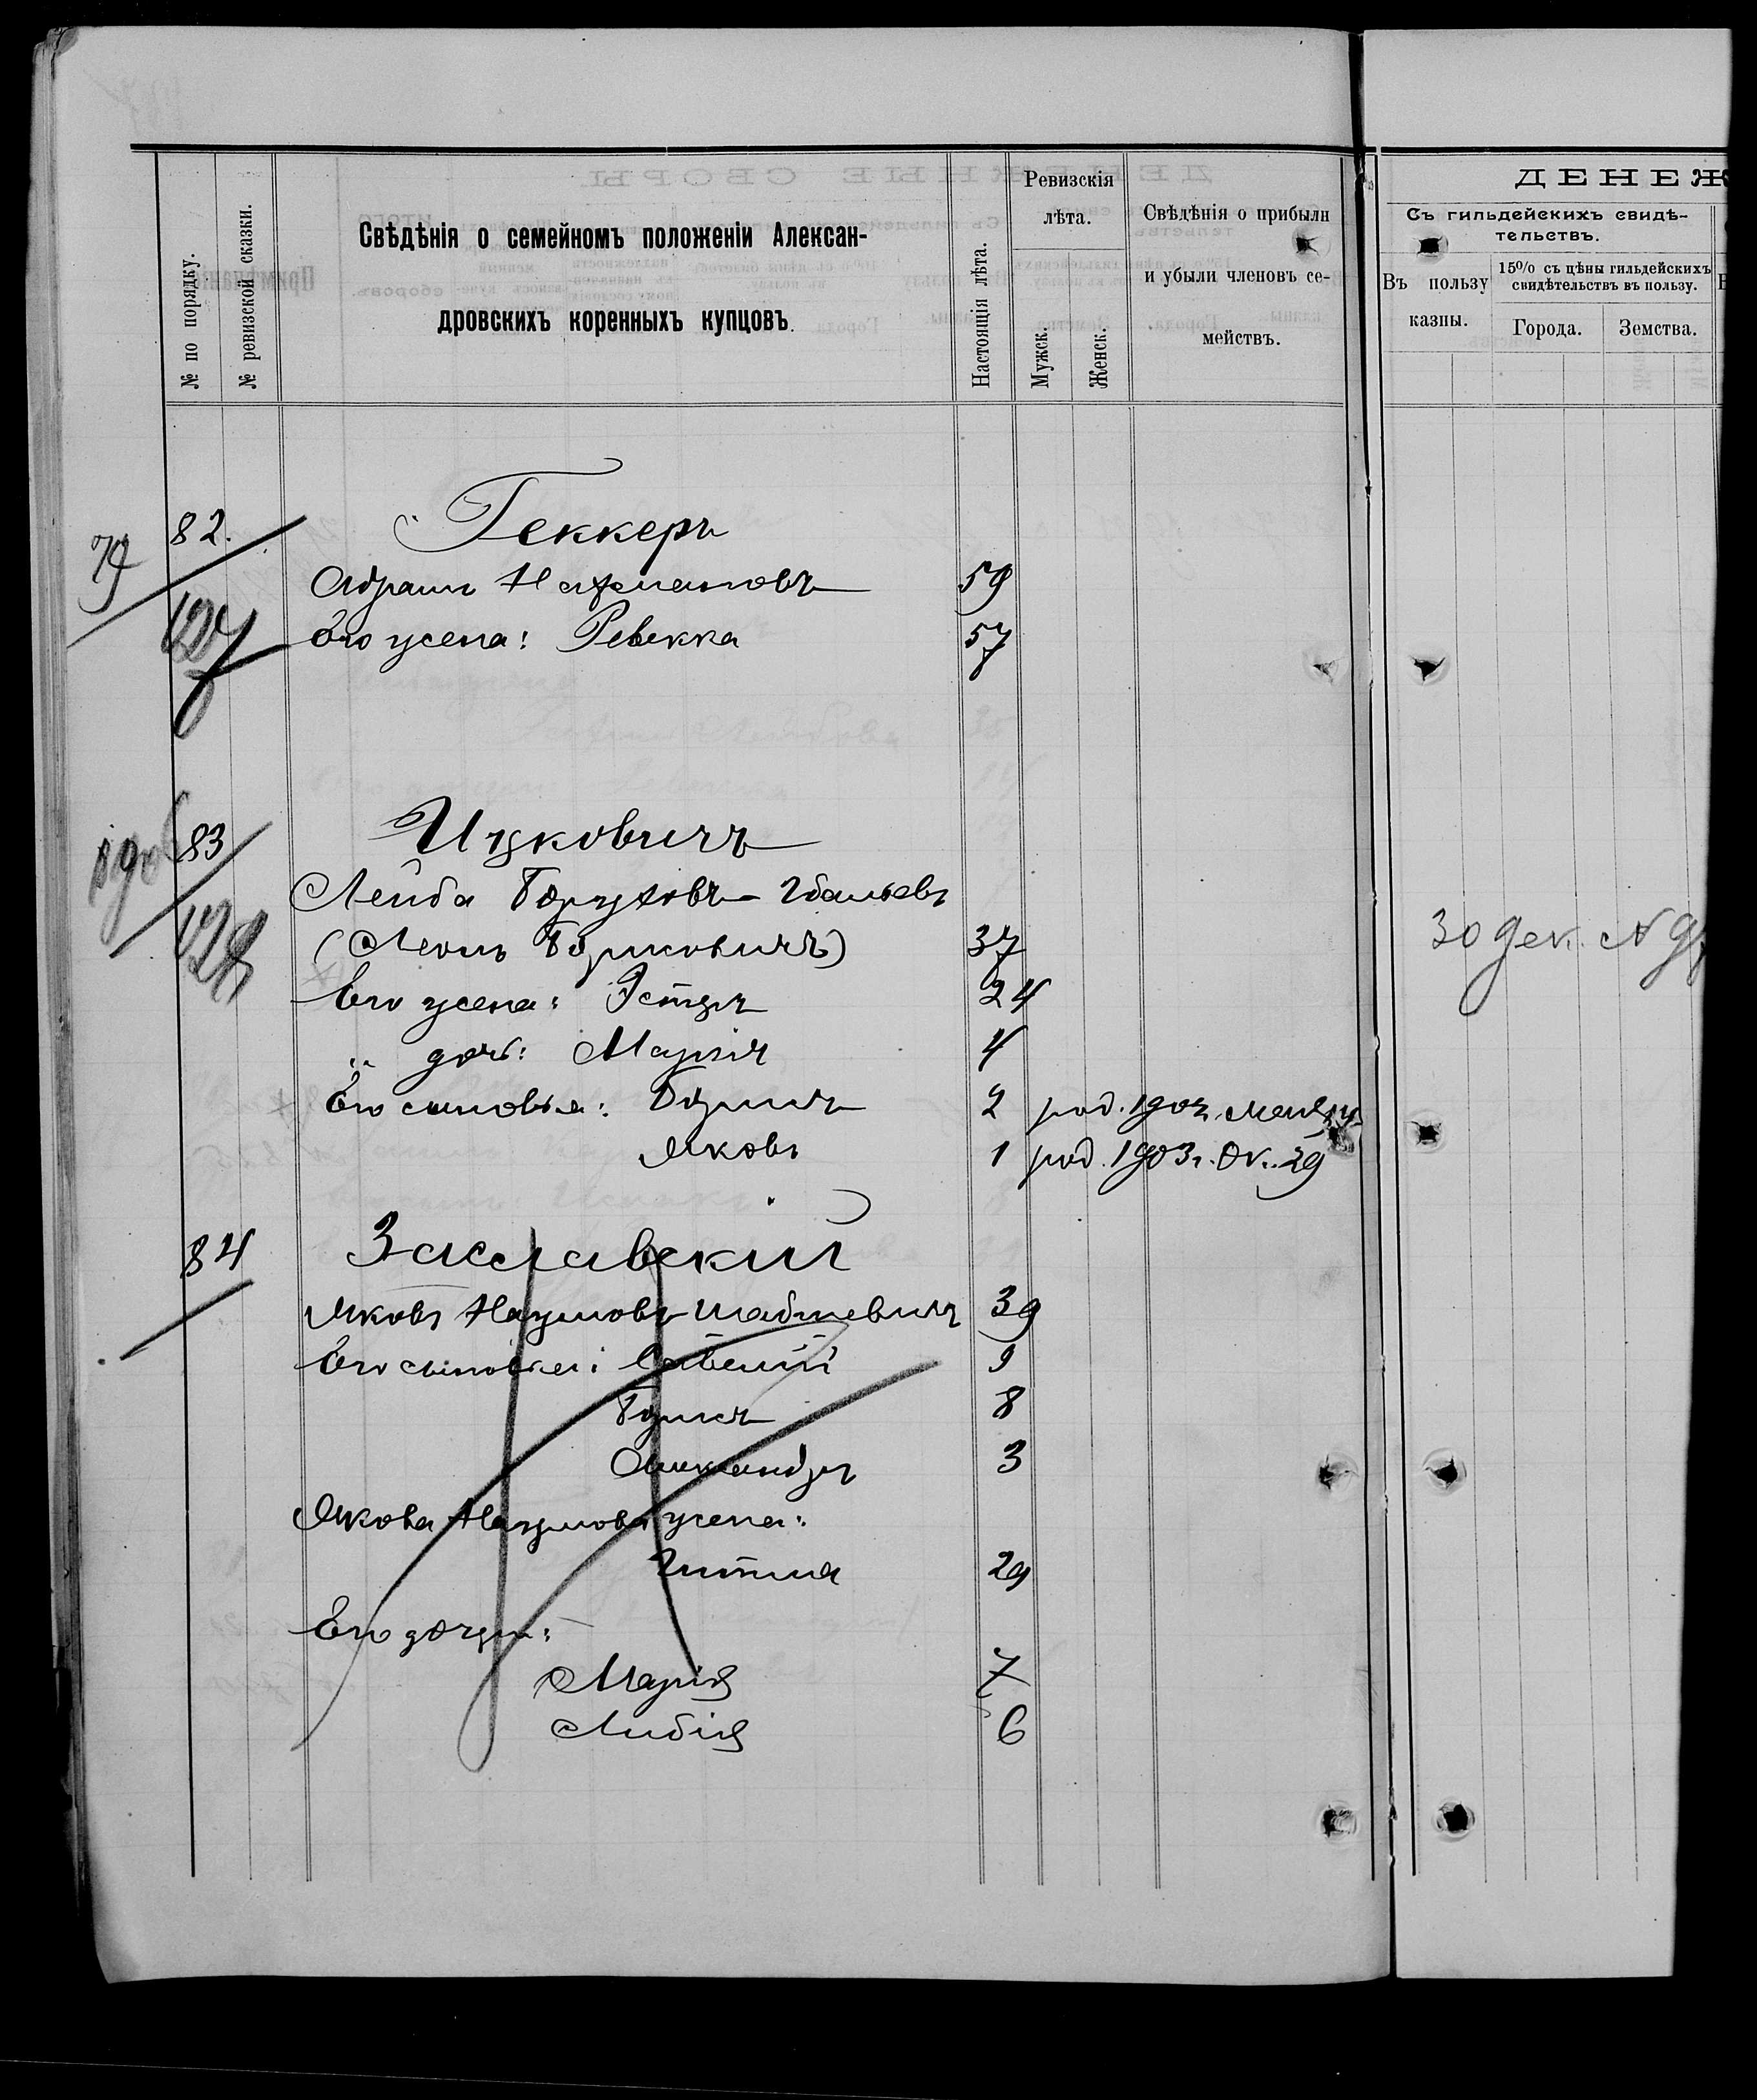 ДЕНЕЖ
№ по порядку.
№ ревизской сказки.
Свѣдѣнія о семейномъ положеніи Алексан-
дровскихъ коренныхъ купцовъ.
Настоящія лѣта.
Ревизскія
лѣта.
Мужск.
Женск.
Свѣдѣнія о прибыли
и убыли членовъ се-
мействъ.
Съ гильдейскихъ свидѣ-
тельствъ.
Въ пользу
казны.
15% съ цѣны гильдейскихъ
свидѣтельствъ въ пользу.
Города.
Земства.
79
82.
127
Геккеръ
Абрамъ Нахмановъ 59
Его жена: Ревекка 57
83
128
Ицковичъ
Лейба Боруховъ-
(Леонъ Борисовичъ) 37
30 дек. №
Его жена: Эстеръ 24
" дочь: Марія 4
Его сыновья: Борисъ 2 род. 190
Яковъ 1 род. 1903г. Ок. 29
84
Заславскій
Яковъ Наумовъ-Шабшевичъ 39
Его сыновья: Савелій 9
Борисъ 8
Александръ 3
Якова Наумова жена:
Гитля 29
Его дочери:
Марія 7
Лидія 6